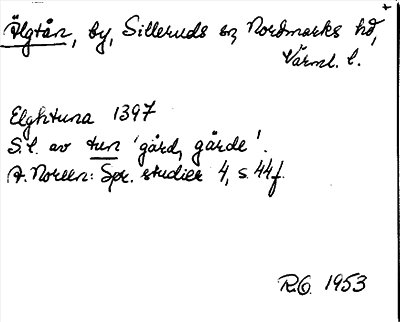 Älgtån, by, Silleruds sn, Nordmarks hd,
Värml. l.
Elghtuna 1397
S.l. av tun 'gård, gärde'.
A. Noreen: Spr. studier 4, s. 44f.
R.O. 1953